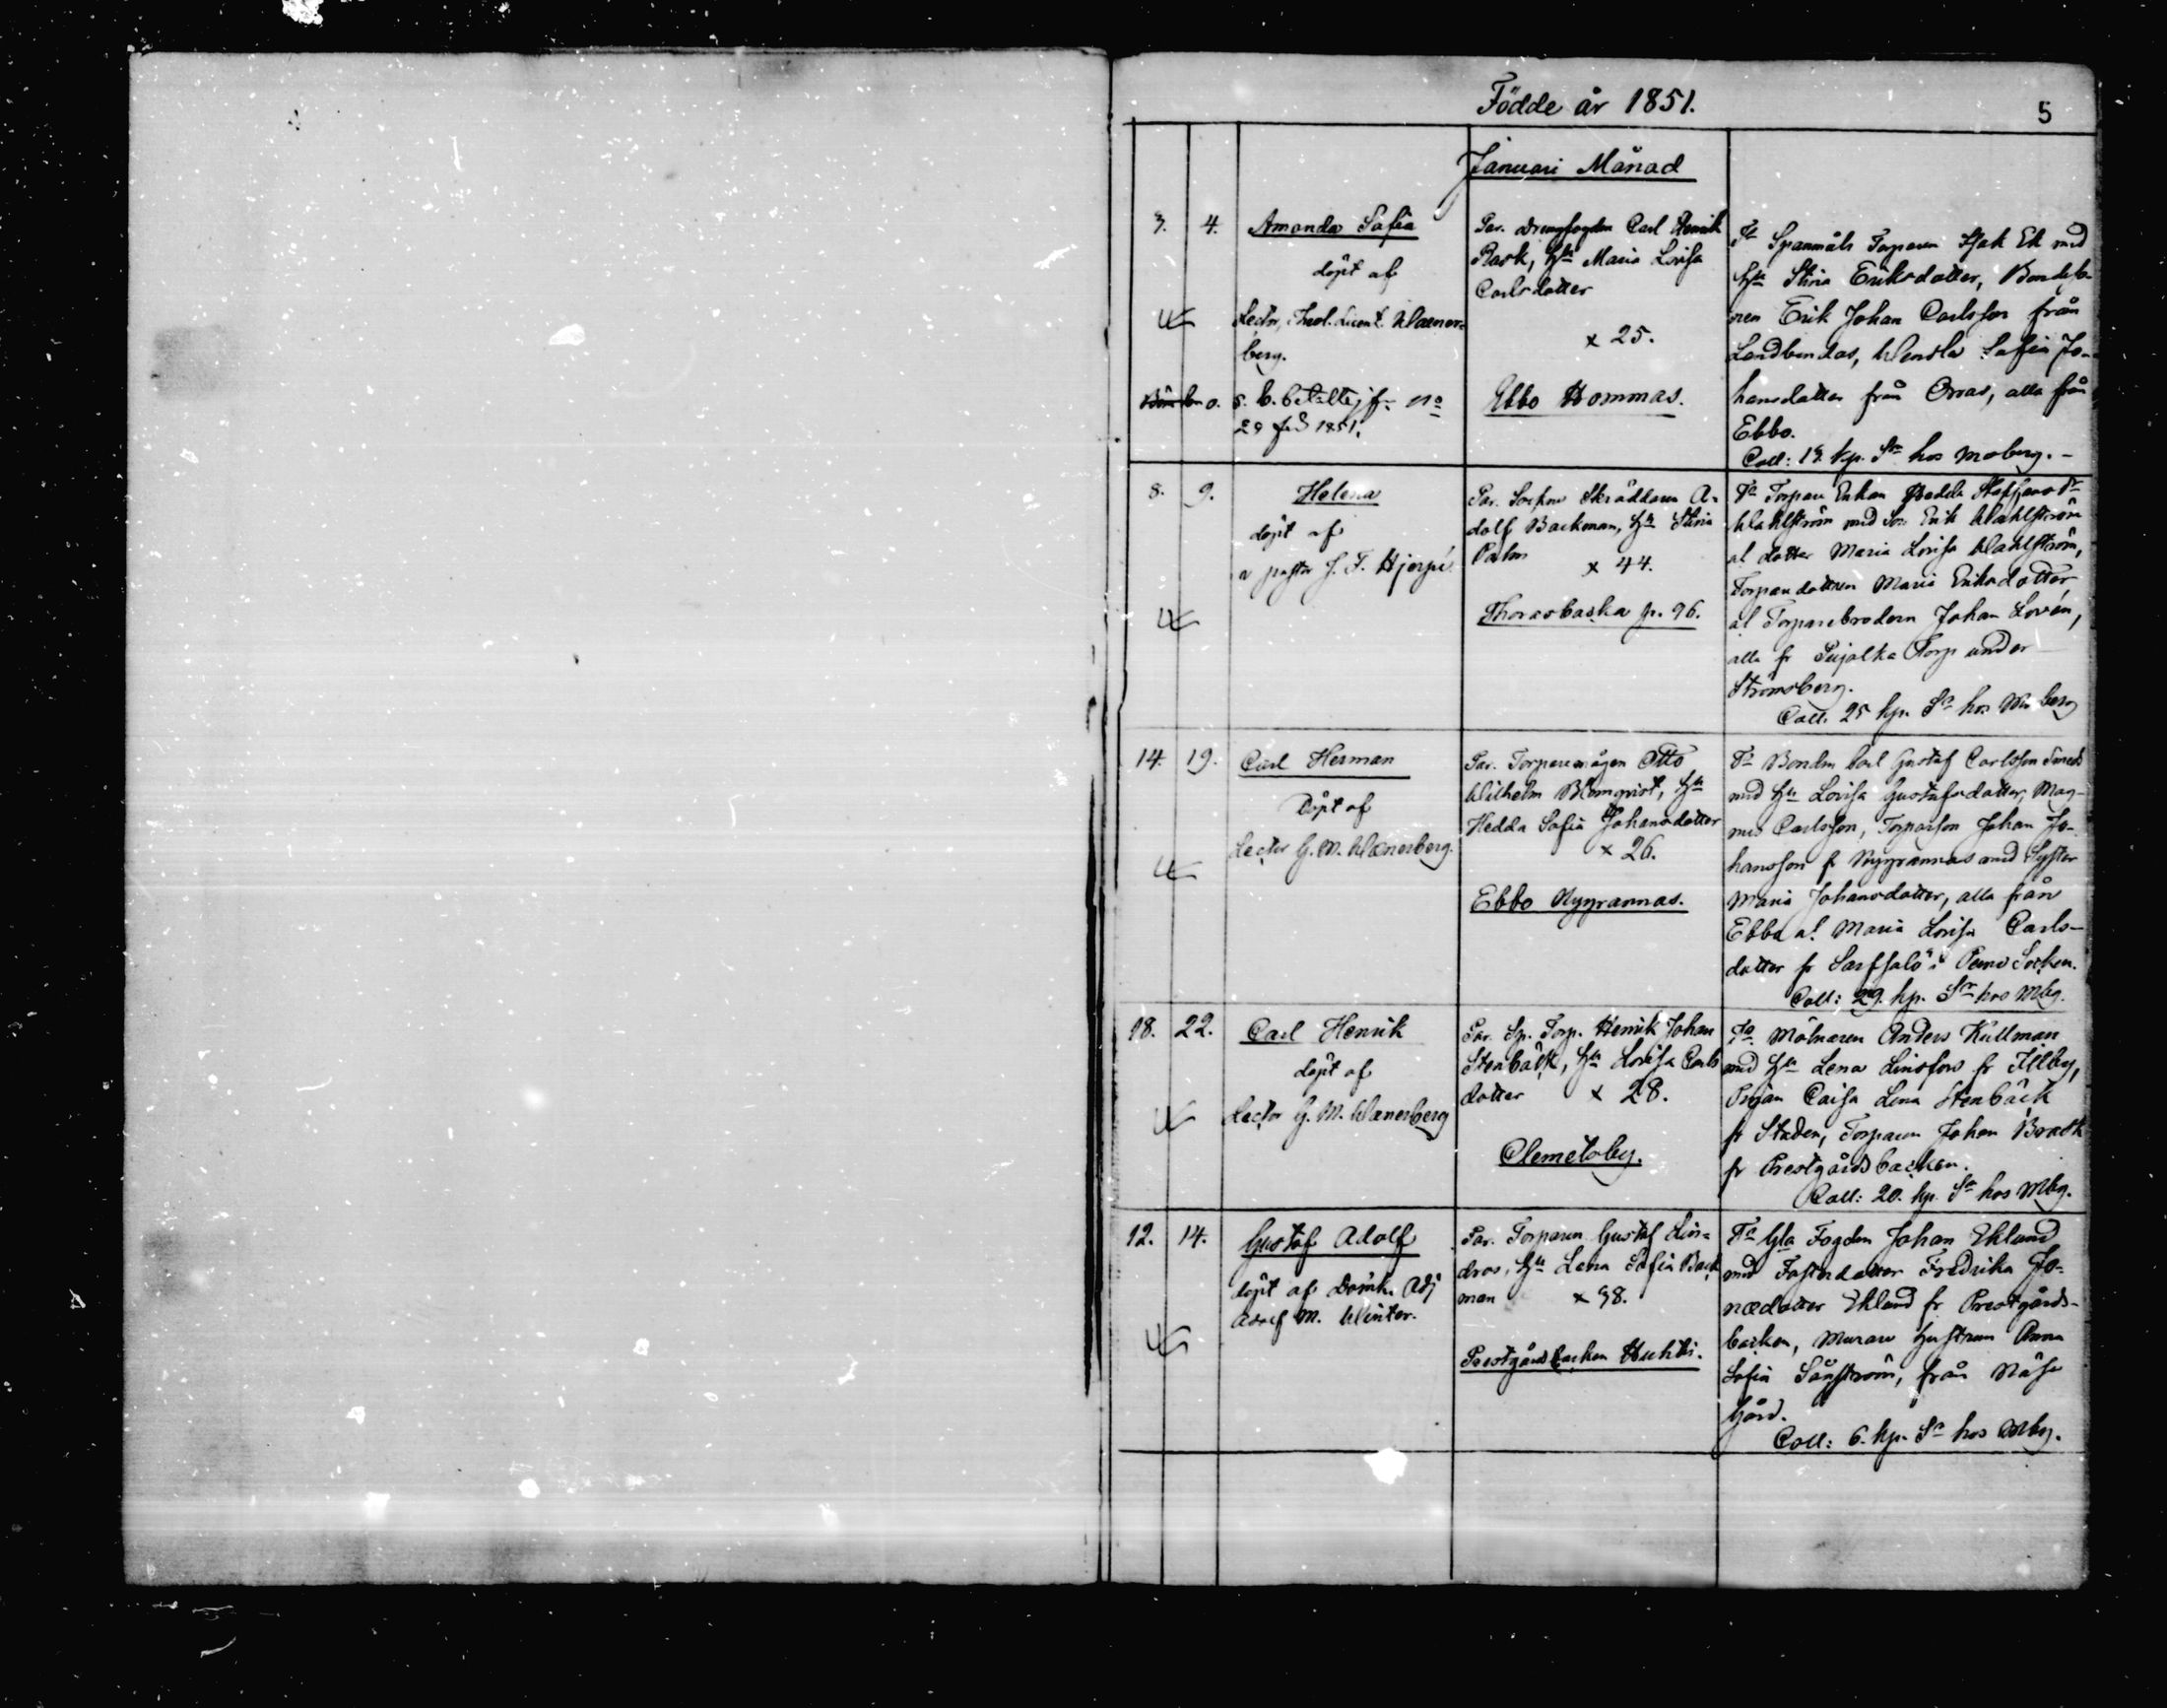 Födde år 1851.
5
Januari Månad
3. 4. Amanda Sofia
döpt af
Lector, Theol. Licent. Wænerberg.
s. b. betalt
28 1851.
Par. Drengfogden Carl Henrik
Rask, Hu Maria Lovisa
Carlsdotter
x 25.
Ebbo Hommas.
Fa Spanmåls Torparen Isak Ek med
Hu Stina Eriksdotter, Bondeso-
nen Erik Johan Carlsson från
Landbondas, Wendla Sofia Jo-
hansdotter från Orras, alla från
Ebbo.
Coll: 19. kp. Sr hos Moberg.-
8. 9. Helena
döpt af
v pastor J. F. Hjerpé.
Par. Socken Skräddaren A-
dolf Backman, Hu Stina
Palm
x 44.
Thorasbacka p. 96.
Fa Torpare Enkan Hedda Staffans dr
Wahlström med Son Erik Wahlström
al dotter Maria Lovisa Wahlström,
Torparedottren Maria Eriksdotter
al Torparebrodern Johan Lovén,
alla fr Torp under
Strömsberg.
Coll: 25 kp. Sr hos Moberg
14. 19. Carl Herman
Döpt af
Lector G. M. Wænerberg.
Par. Torparemågen Otto
Wilhelm Blomqvist, Hu
Hedda Sofia Johansdotter
x 26.
Ebbo Nygrannas.
Fa Bonden Carl Gustaf Carlsson Smeds
med Hu Lovisa Gustafsdotter, Mag-
nus Carlsson, Torparson Johan Jo-
hansson fr Nygrannas med Syster
Maria Johansdotter, alla från
Ebbo al Maria Lovisa Carls-
dotter fr Sarfsalö i Perno Socken.
Coll: 29. kp. Sr hos Mbg.
18. 22. Carl Henrik
döpt af
Lector G. M. Wænerberg
Par. Sp. Torp. Henrik Johan
Stenbäck, Hu Lovisa Carls
dotter x 28.
Clemetsby.
Fa. Mölnaren Anders Kullman
med Hu Lena Lindfors fr Illby,
Pigan Caisa Lena Stenbäck
fr Staden, Torparen Johan Brask
fr Prestgårdsbacken.
Coll: 20. kp. Sr hos Mbg.
12. 14. Gustaf Adolf
döpt af Domk. Adj
Adolf M. Winter.
Par. Torparen Gustaf Lin-
dros, Hu Lena Sofia Back
man x 38.
Prestgårdsbacken Huhti.
Fa Gla Fogden Johan Eklund
med Fosterdotter Fredrika Jo-
nædotter Eklund fr Prestgårds-
backen, Murare Hustrun Anna
Sofia Sånström, från Näse
Gård.
Coll: 6. kp. Sr hos Mbg.